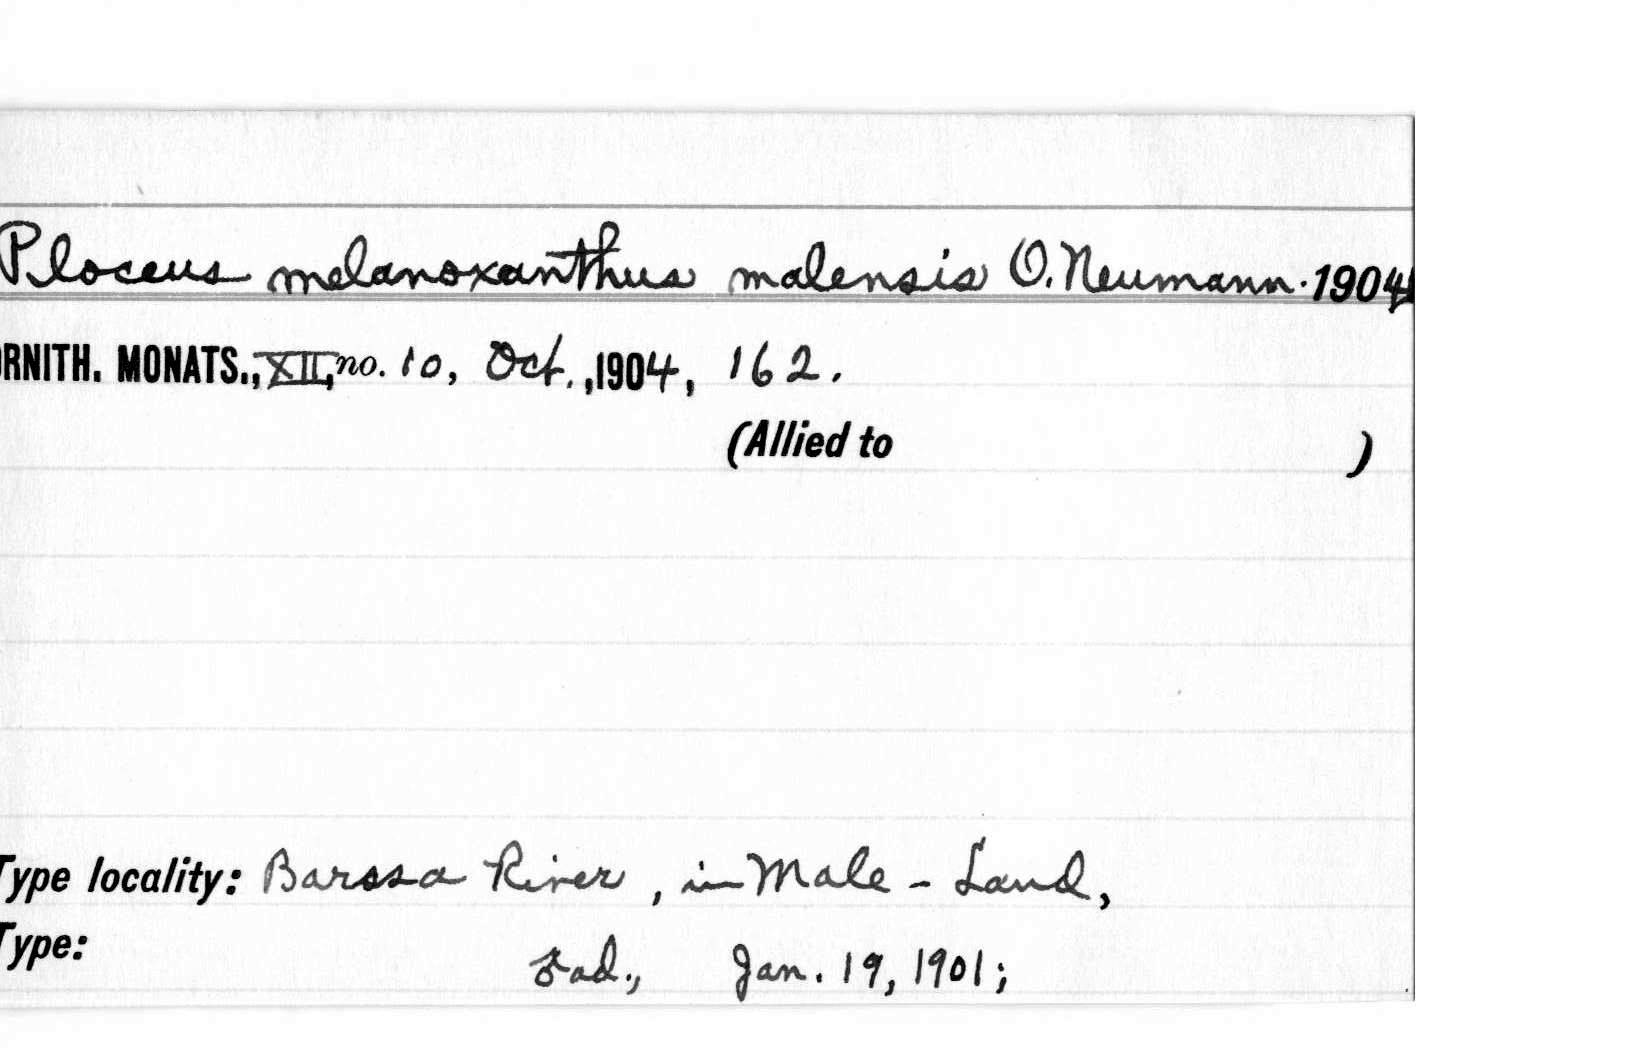 Ploceus melanoxanthus malensis O. Neumann. 1904
ORNITH. MONATS., XII, no. 10, Oct., 1904, 162.
(Allied to )
Type locality: Barssa River, in Male-Land,
Type: ♂ ad., Jan. 19, 1901;